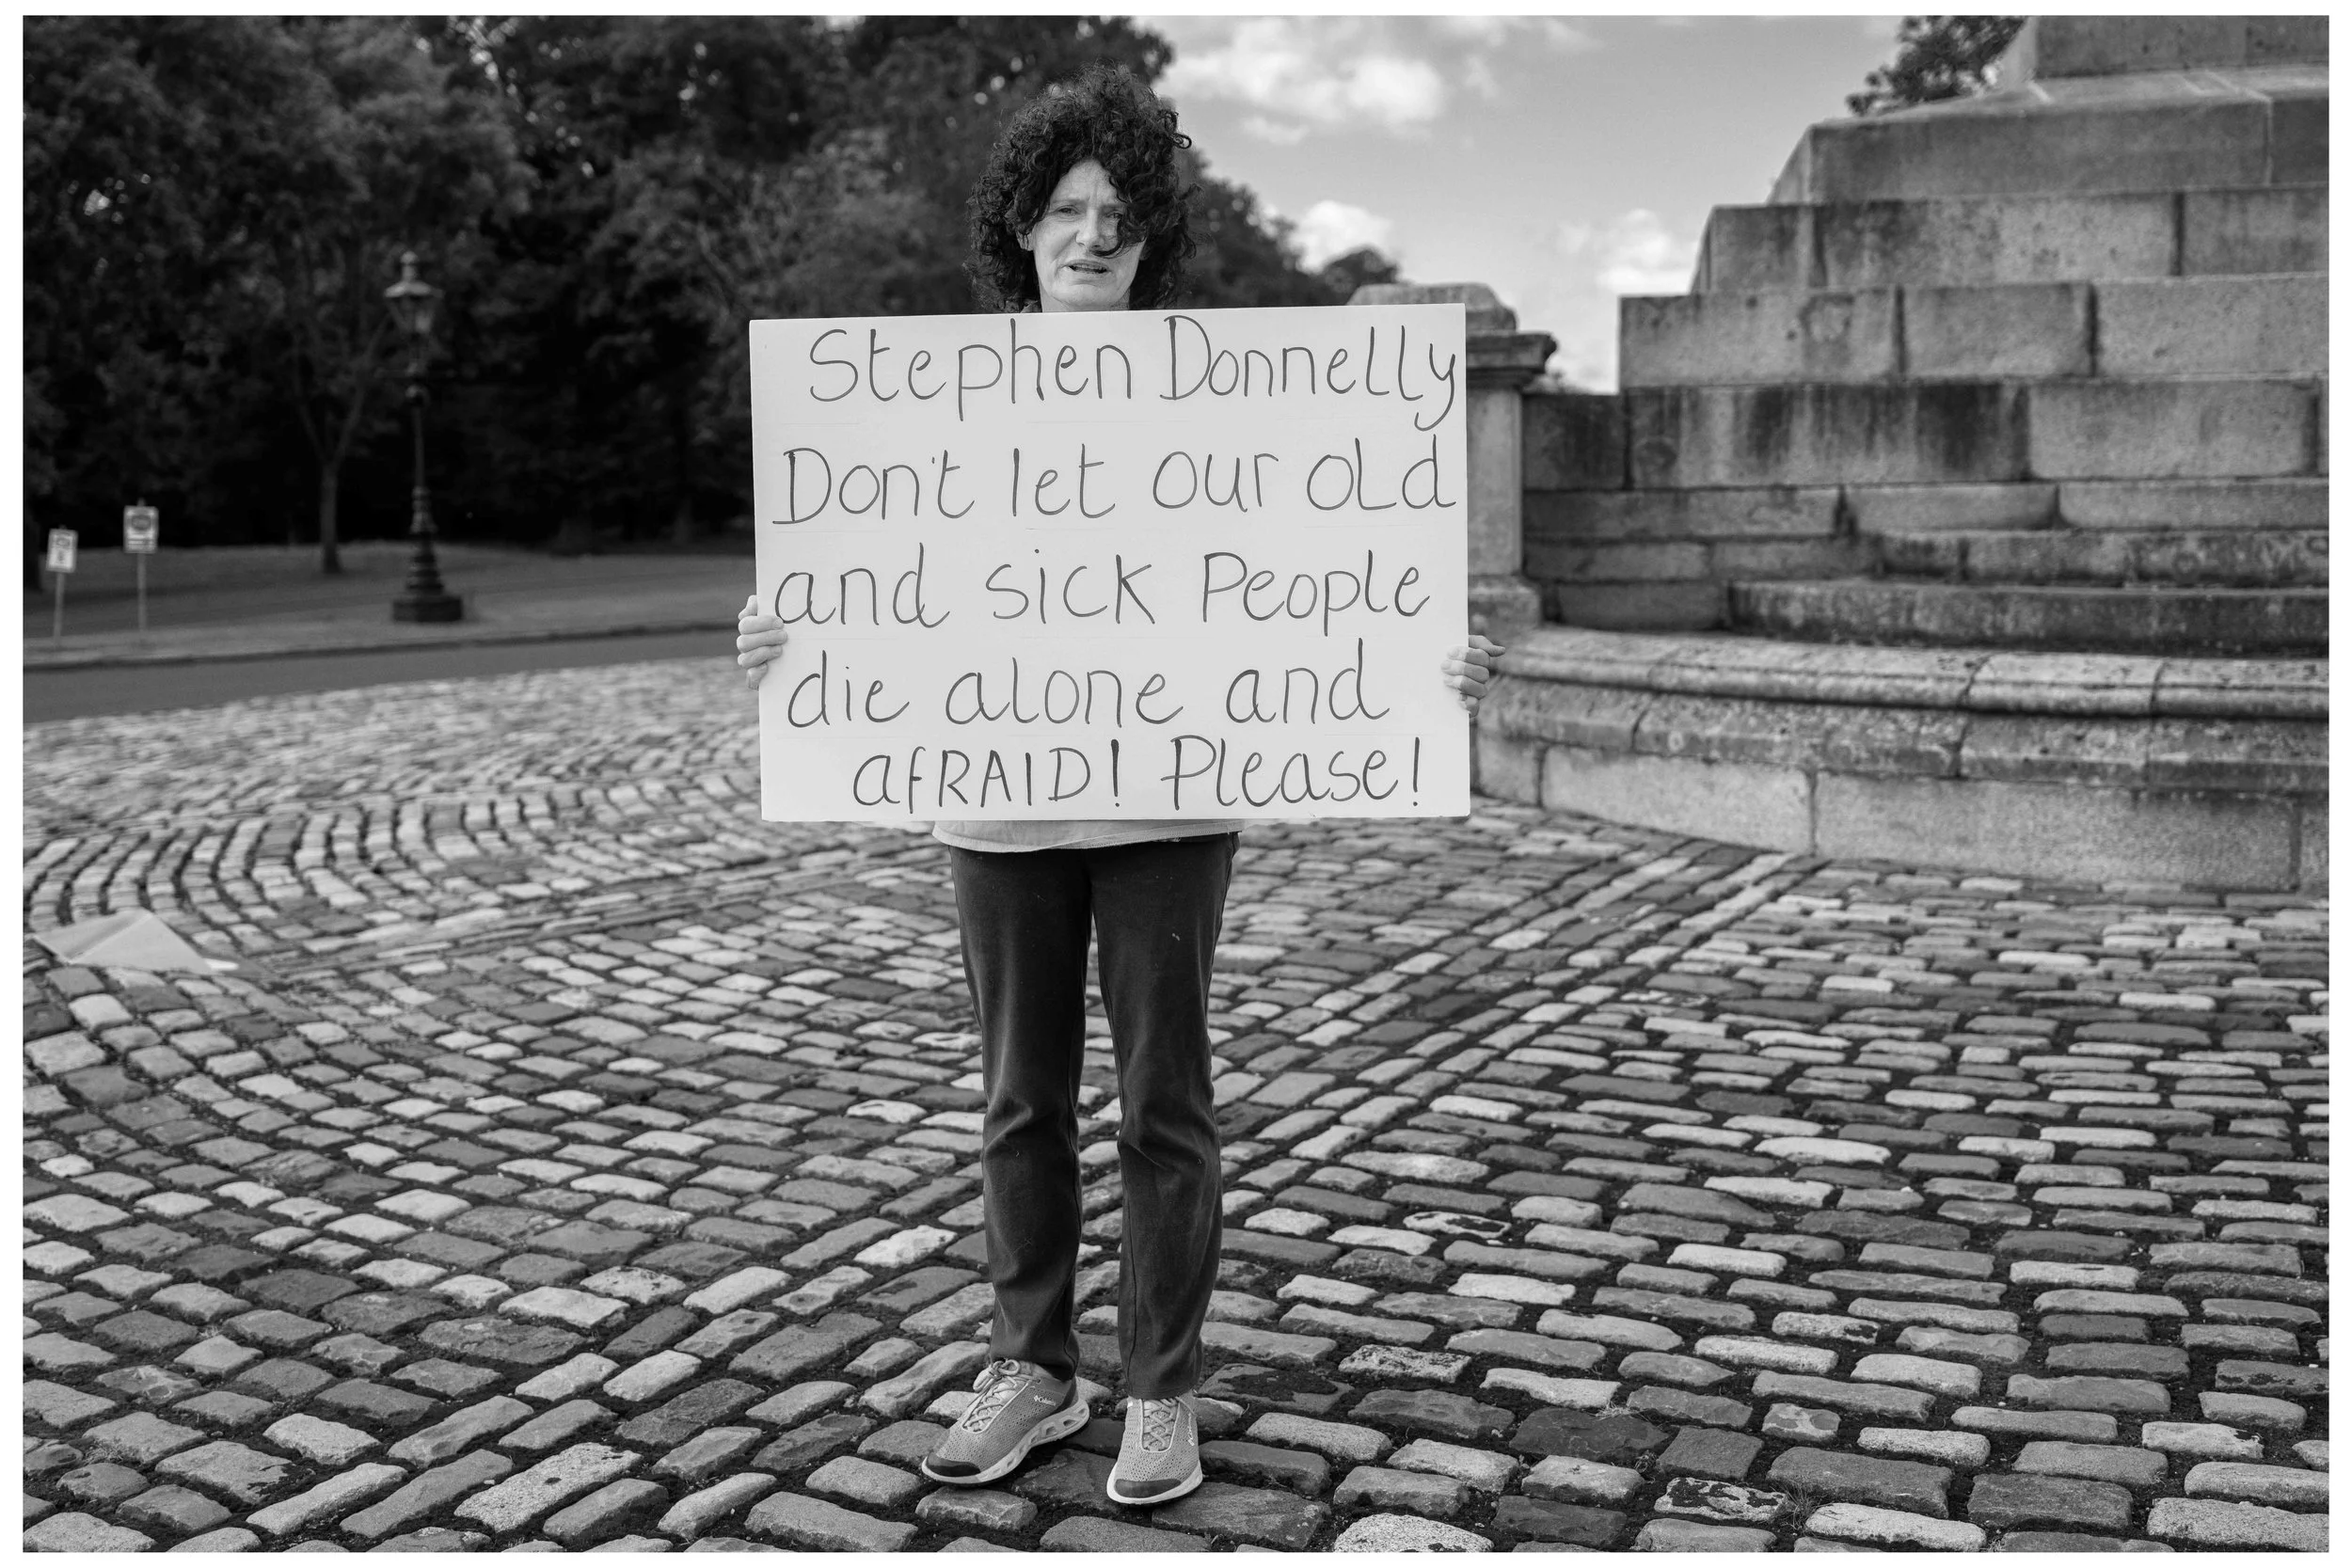 Stephen Donnelly
Don't let our old
and sick People
die alone and
afRAID! Please!